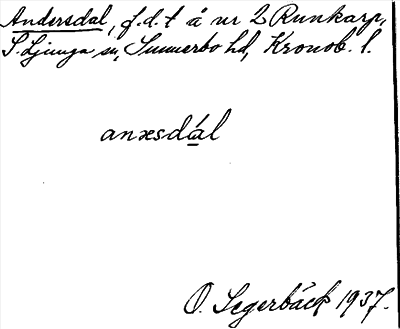 Andersdal, f.d.t å nr 2 Runkarp,
S. Ljunga sn, Sunnerbo hd, Kronob. l.
anæsdál
O. Segerbäck 1937.